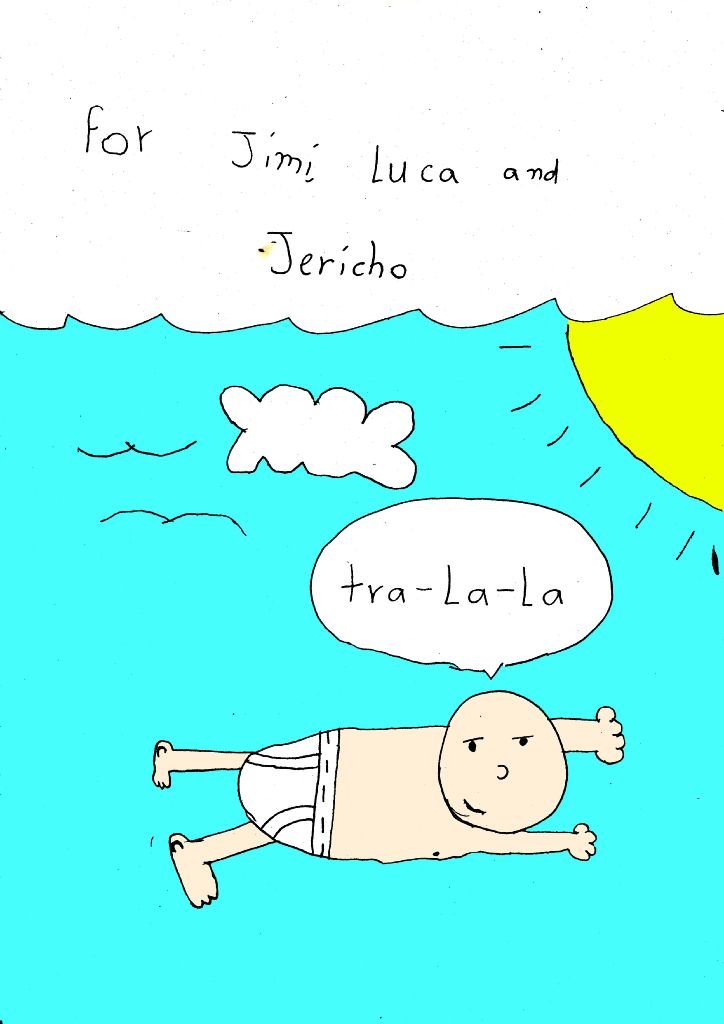 for Jimi Luca and
Jericho
tra-La-La